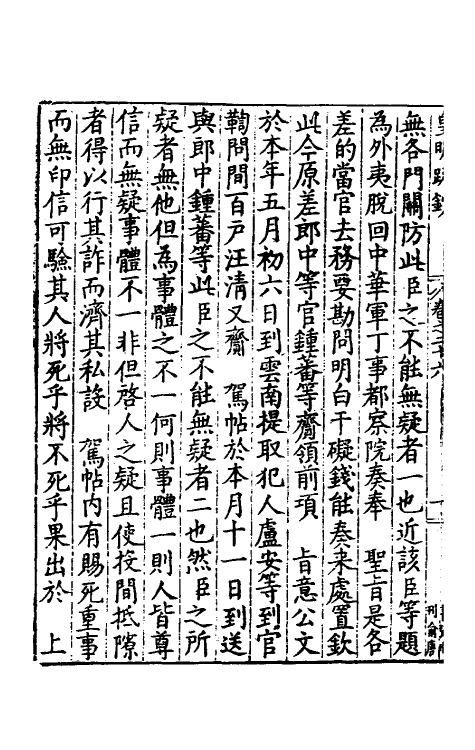 皇明疏鈔　卷之二十六
無各門關防此臣之不能無疑者一也近該臣等題
為外夷脫回中華軍丁事都察院奏奉　聖旨是各
差的當官去務要勘問明白干礙錢能奏来處置欽
此今原差郎中等官鍾蕃等齎領前項　旨意公文
於本年五月初六日到雲南提取犯人盧安等到官
鞫問間百戶汪清又齎　駕帖於本月十一日到送
與郎中鍾蕃等此臣之不能無疑者二也然臣之所
疑者無他但為事體之不一何則事體一則人皆尊
信而無疑事體不一非但啓人之疑且使投間抵隙
者得以行其詐而濟其私設　駕帖内有賜死重事
而無印信可驗其人將死乎將不死乎果出於　上